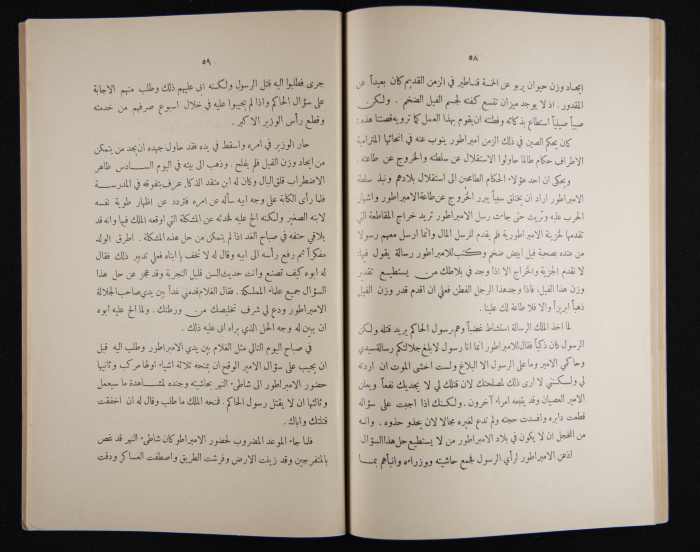 ٥٨
ايجاد وزن حيوان يربو عن الخمسة قناطير في الزمن القديم كان بعيداً عن
المقدور . اذ لا يوجد ميزان تتسع كفته لجسم الفيل الضخم . ولكن
صبياً صينياً استطاع بذكائه وفطنته ان يقوم بهذا العمل كما ترويه قصتنا هذه :
كان يحكم الصين في ذلك الزمن امبراطور ينوب عنه في انحائها المترامية
الاطراف حكام طالما حاولوا الاستقلال عن سلطته والخروج عن طاعته .
ويحكى ان احد هؤلاء الحكام الطامحين الى استقلال بلادهم ونبذ سلطة
الامبراطور اراد ان يختلق سبباً يبرر الخروج عن طاعة الامبراطور واشهار
الحرب عليه وتريث حتى جاءت رسل الامبراطور تريد خراج المقاطعة التي
تقدمها لخزينة الامبراطورية فلم يقدم للرسل المال وانما ارسل معهم رسولا
من عنده بصحبة فيل ابيض ضخم وكتب للامبراطور رسالة يقول فيها:
لا نقدم الجزية والخراج الا اذا وجد في بلاطك من يستطيع تقدير
وزن هذا الفيل، فاذا وجد هذا الرجل الفطن فعلي ان اقدم قدر وزن الفيل
ذهباً ابريزاً والا فلا طاعة لك علينا .
لما اخذ الملك الرسالة استشاط غضباً وهم برسول الحاكم يريد قتله ولكن
الرسول كان ذكياً فقال للامبراطور انما انا رسول لابلغ جلالتكم رسالة سيدي
وحاكمي الامير وما على الرسول الا البلاغ ولست اخشى الموت ان اردته
لي ولكنني لا ارى ذلك لمصلحتك لان قتلك لي لا يجديك نفعاً ويعلن
الامير العصيان وقد يتبعه امراء آخرون . ولكنك اذا اجبت على سؤاله
قطعت دابره وافسدت حجته ولم تدع لغيره مجالا لان يحذو حذوه . وانه
من المخجل ان لا يكون في بلاد الامبراطور من لا يستطيع حل هذا السؤال.
اذعن الامبراطور لرأي الرسول فجمع حاشيته ووزراءه وانبأهم بما
٥٩
جرى فطلبوا اليه قتل الرسول ولكنه ابى عليهم ذلك وطلب منهم الاجابة
على سؤال الحاكم واذا لم يجيبوا عليه في خلال اسبوع صرفهم من خدمته
وقطع رأس الوزير الاكبر .
حار الوزير في امره واسقط في يده فقد حاول جهده ان يجد من يتمكن
من ايجاد وزن الفيل فلم يفلح . وذهب الى بيته في اليوم السادس ظاهر
الاضطراب قلق البال وكان له ابن متقد الذكاء عرف بتفوقه في المدرسة
فلما رأى الكآبة على وجه ابيه سأله عن امره فتردد عن اظهار طوية نفسه
لابنه الصغير ولكنه الح عليه فحدثه عن المشكلة التي اوقعه الملك فيها وانه قد
يلاقي حتفه في صباح الغد اذا لم يتمكن من حل هذه المشكلة . اطرق الولد
مفكراً ثم رفع رأسه الى ابيه وقال له لا تخف يا ابتاه فعلي تدبير ذلك فقال
له ابوه كيف تصنع وانت حديث السن قليل التجربة وقد عجز عن حل هذا
السؤال جميع علماء المملكة . فقال الغلام قدمني غداً بين يدي صاحب الجلالة
الامبراطور ودع لي شرف تخليصك من ورطتك . ولما الح عليه ابوه
ان يبين له وجه الحل الذي يراه ابى عليه ذلك .
في صباح اليوم التالي مثل الغلام بين يدي الامبراطور وطلب اليه قبل
ان يجيب على سؤال الامير الوقح ان يمنحه ثلاثة اشياء اولها مركب وثانيها
حضور الامبراطور الى شاطىء النهر بحاشيته وجنده لمشاهدة ما سيعمل
وثالثها ان لا يقتل رسول الحاكم . فمنحه الملك ما طلب وقال له ان اخفقت
قتلتك واباك .
فلما جاء الموعد المضروب لحضور الامبراطور كان شاطىء النهر قد غص
بالمتفرجين وقد زينت الارض وفرشت الطريق واصطفت العساكر ودقت